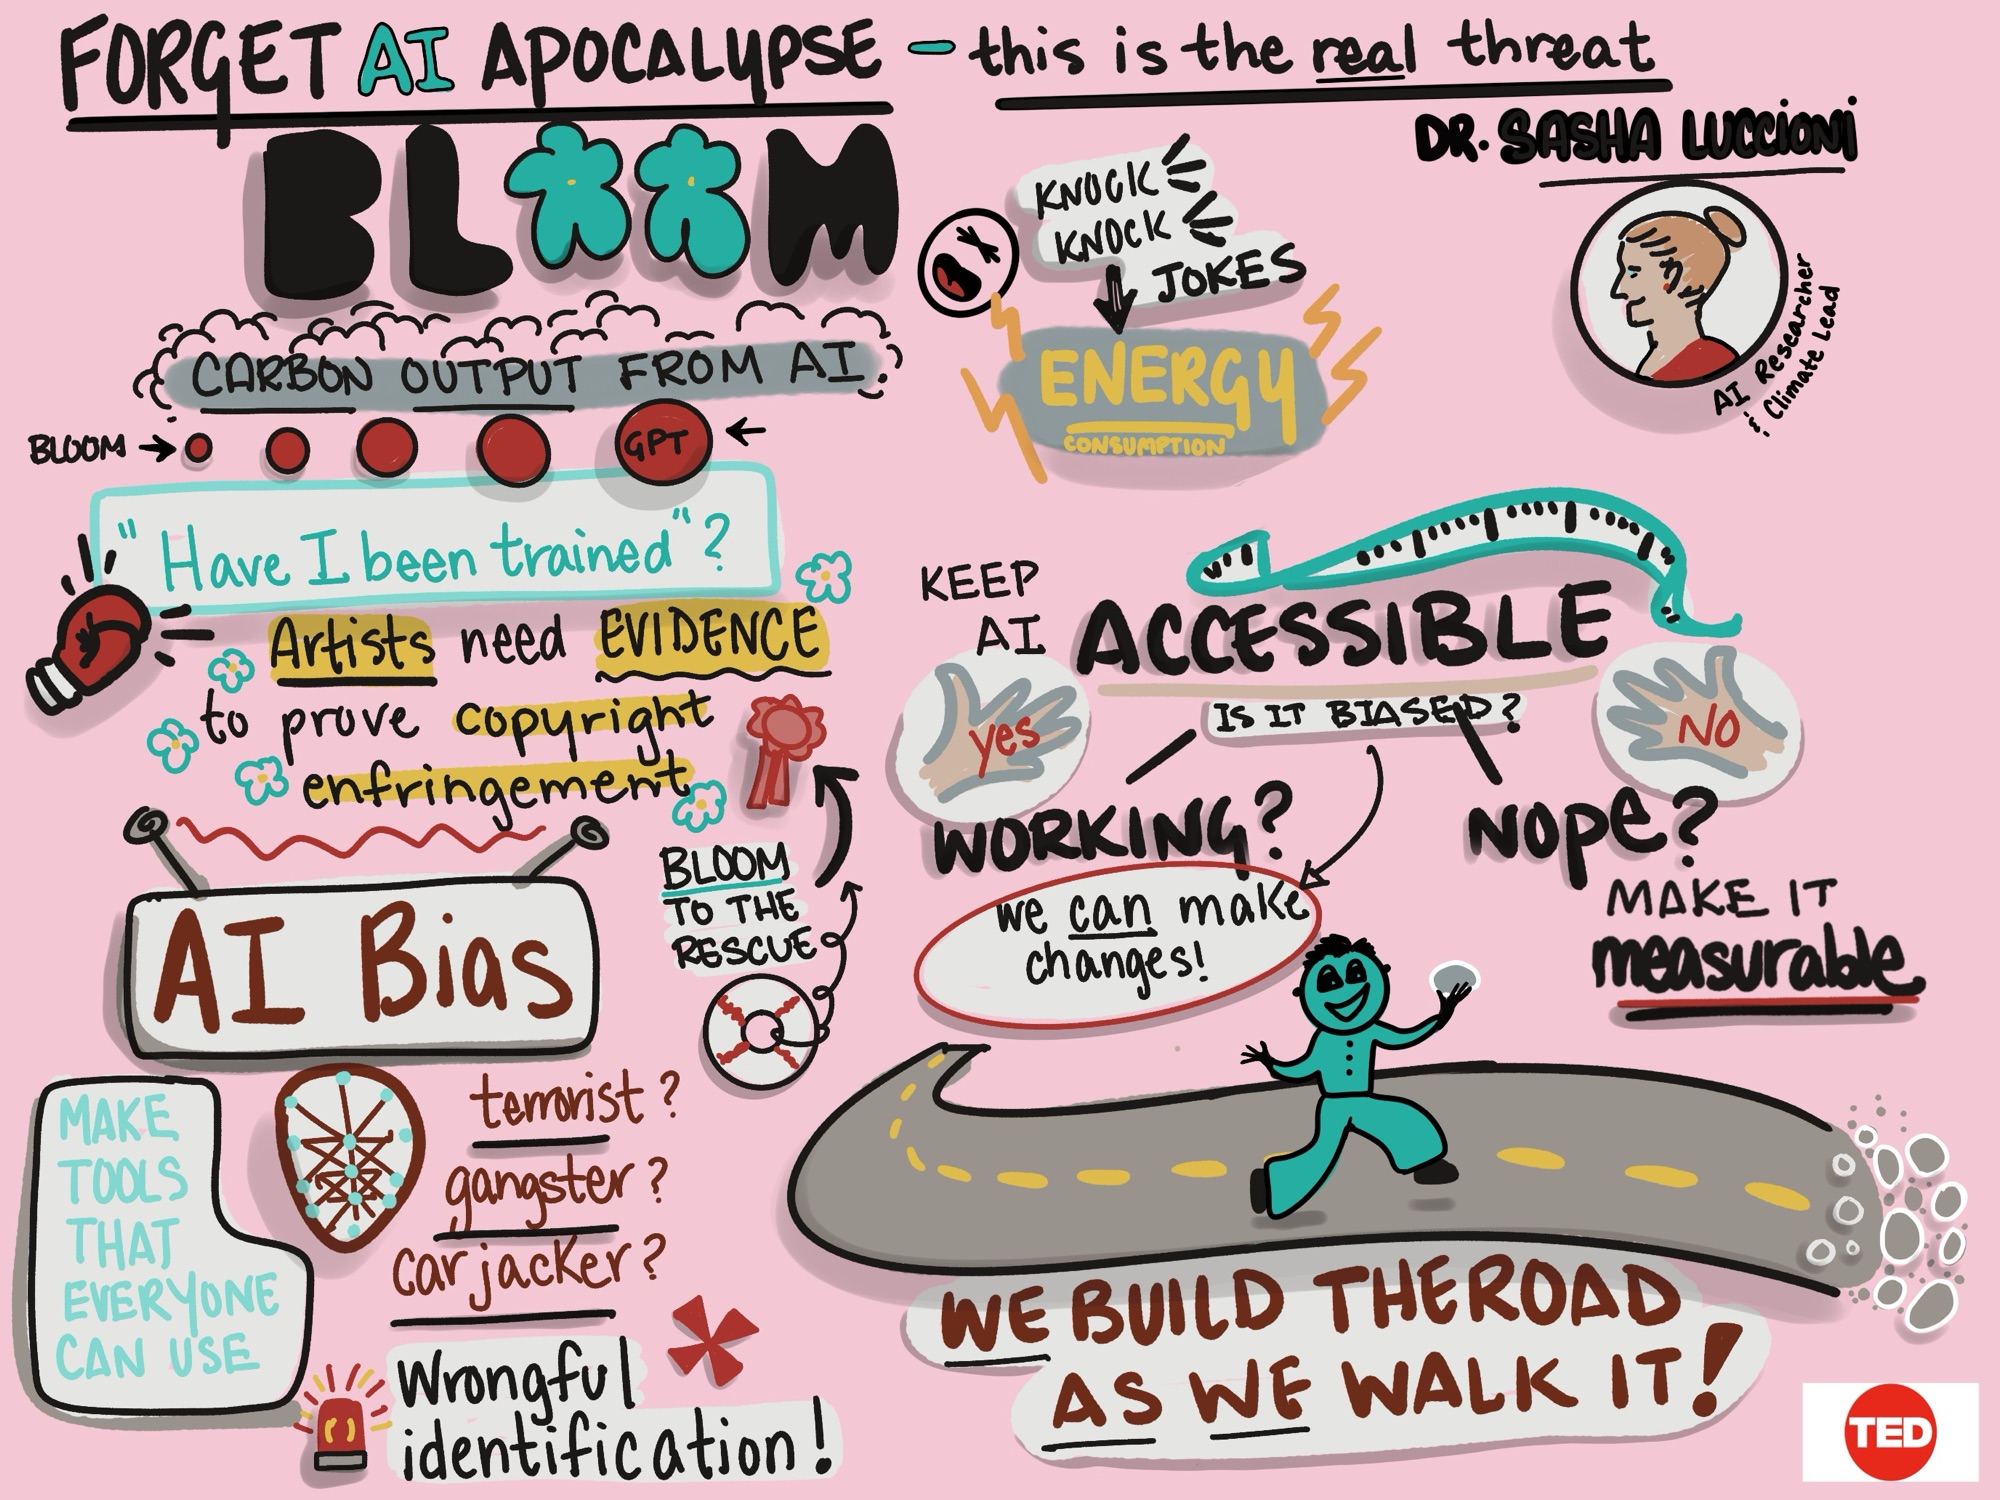 FORGET AI APOCALYPSE - this is the real threat
DR. SASHA LUCCIONI
AI Researcher
& Climate Lead
BLOOM
CARBON OUTPUT FROM AI
BLOOM
GPT
KNOCK
KNOCK
JOKES
ENERGY
CONSUMPTION
"Have I been trained"?
Artists need EVIDENCE
to prove copyright
enfringement
BLOOM
TO THE
RESCUE
AI Bias
MAKE
TOOLS
THAT
EVERYONE
CAN USE
terrorist?
gangster?
carjacker?
Wrongful
identification!
KEEP
AI ACCESSIBLE
yes
IS IT BIASED?
NO
WORKING?
NOPE?
we can make
changes!
MAKE IT
measurable
WE BUILD THEROAD
AS WE WALK IT!
TED